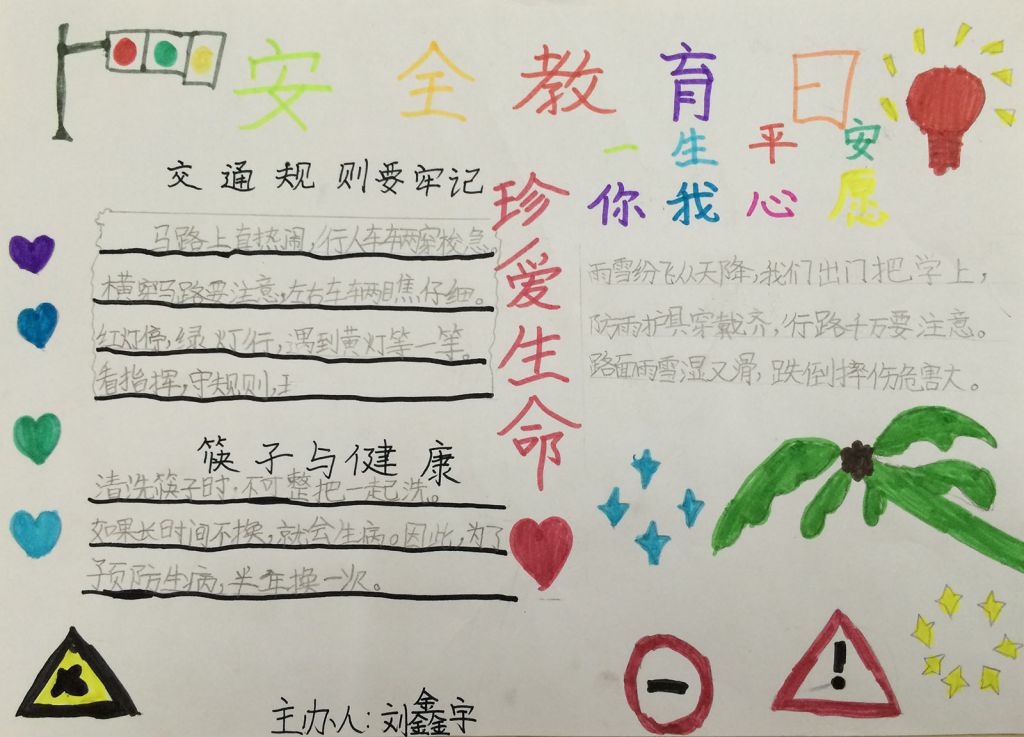 安全教育日
一生平安
你我心愿
交通规则要牢记
马路上真热闹,行人车辆穿梭急。
横穿马路要注意,左右车辆瞧仔细。
红灯停,绿灯行,遇到黄灯等一等。
看指挥,守规则,
珍爱生命
筷子与健康
清洗筷子时,不可整把一起洗。
如果长时间不换,就会生病。因此,为了
预防生病,半年换一次。
雨雪纷飞从天降,我们出门把学上,
防雨护具穿戴齐,行路千万要注意。
路面雨雪湿又滑,跌倒摔伤危害大。
主办人:刘鑫宇